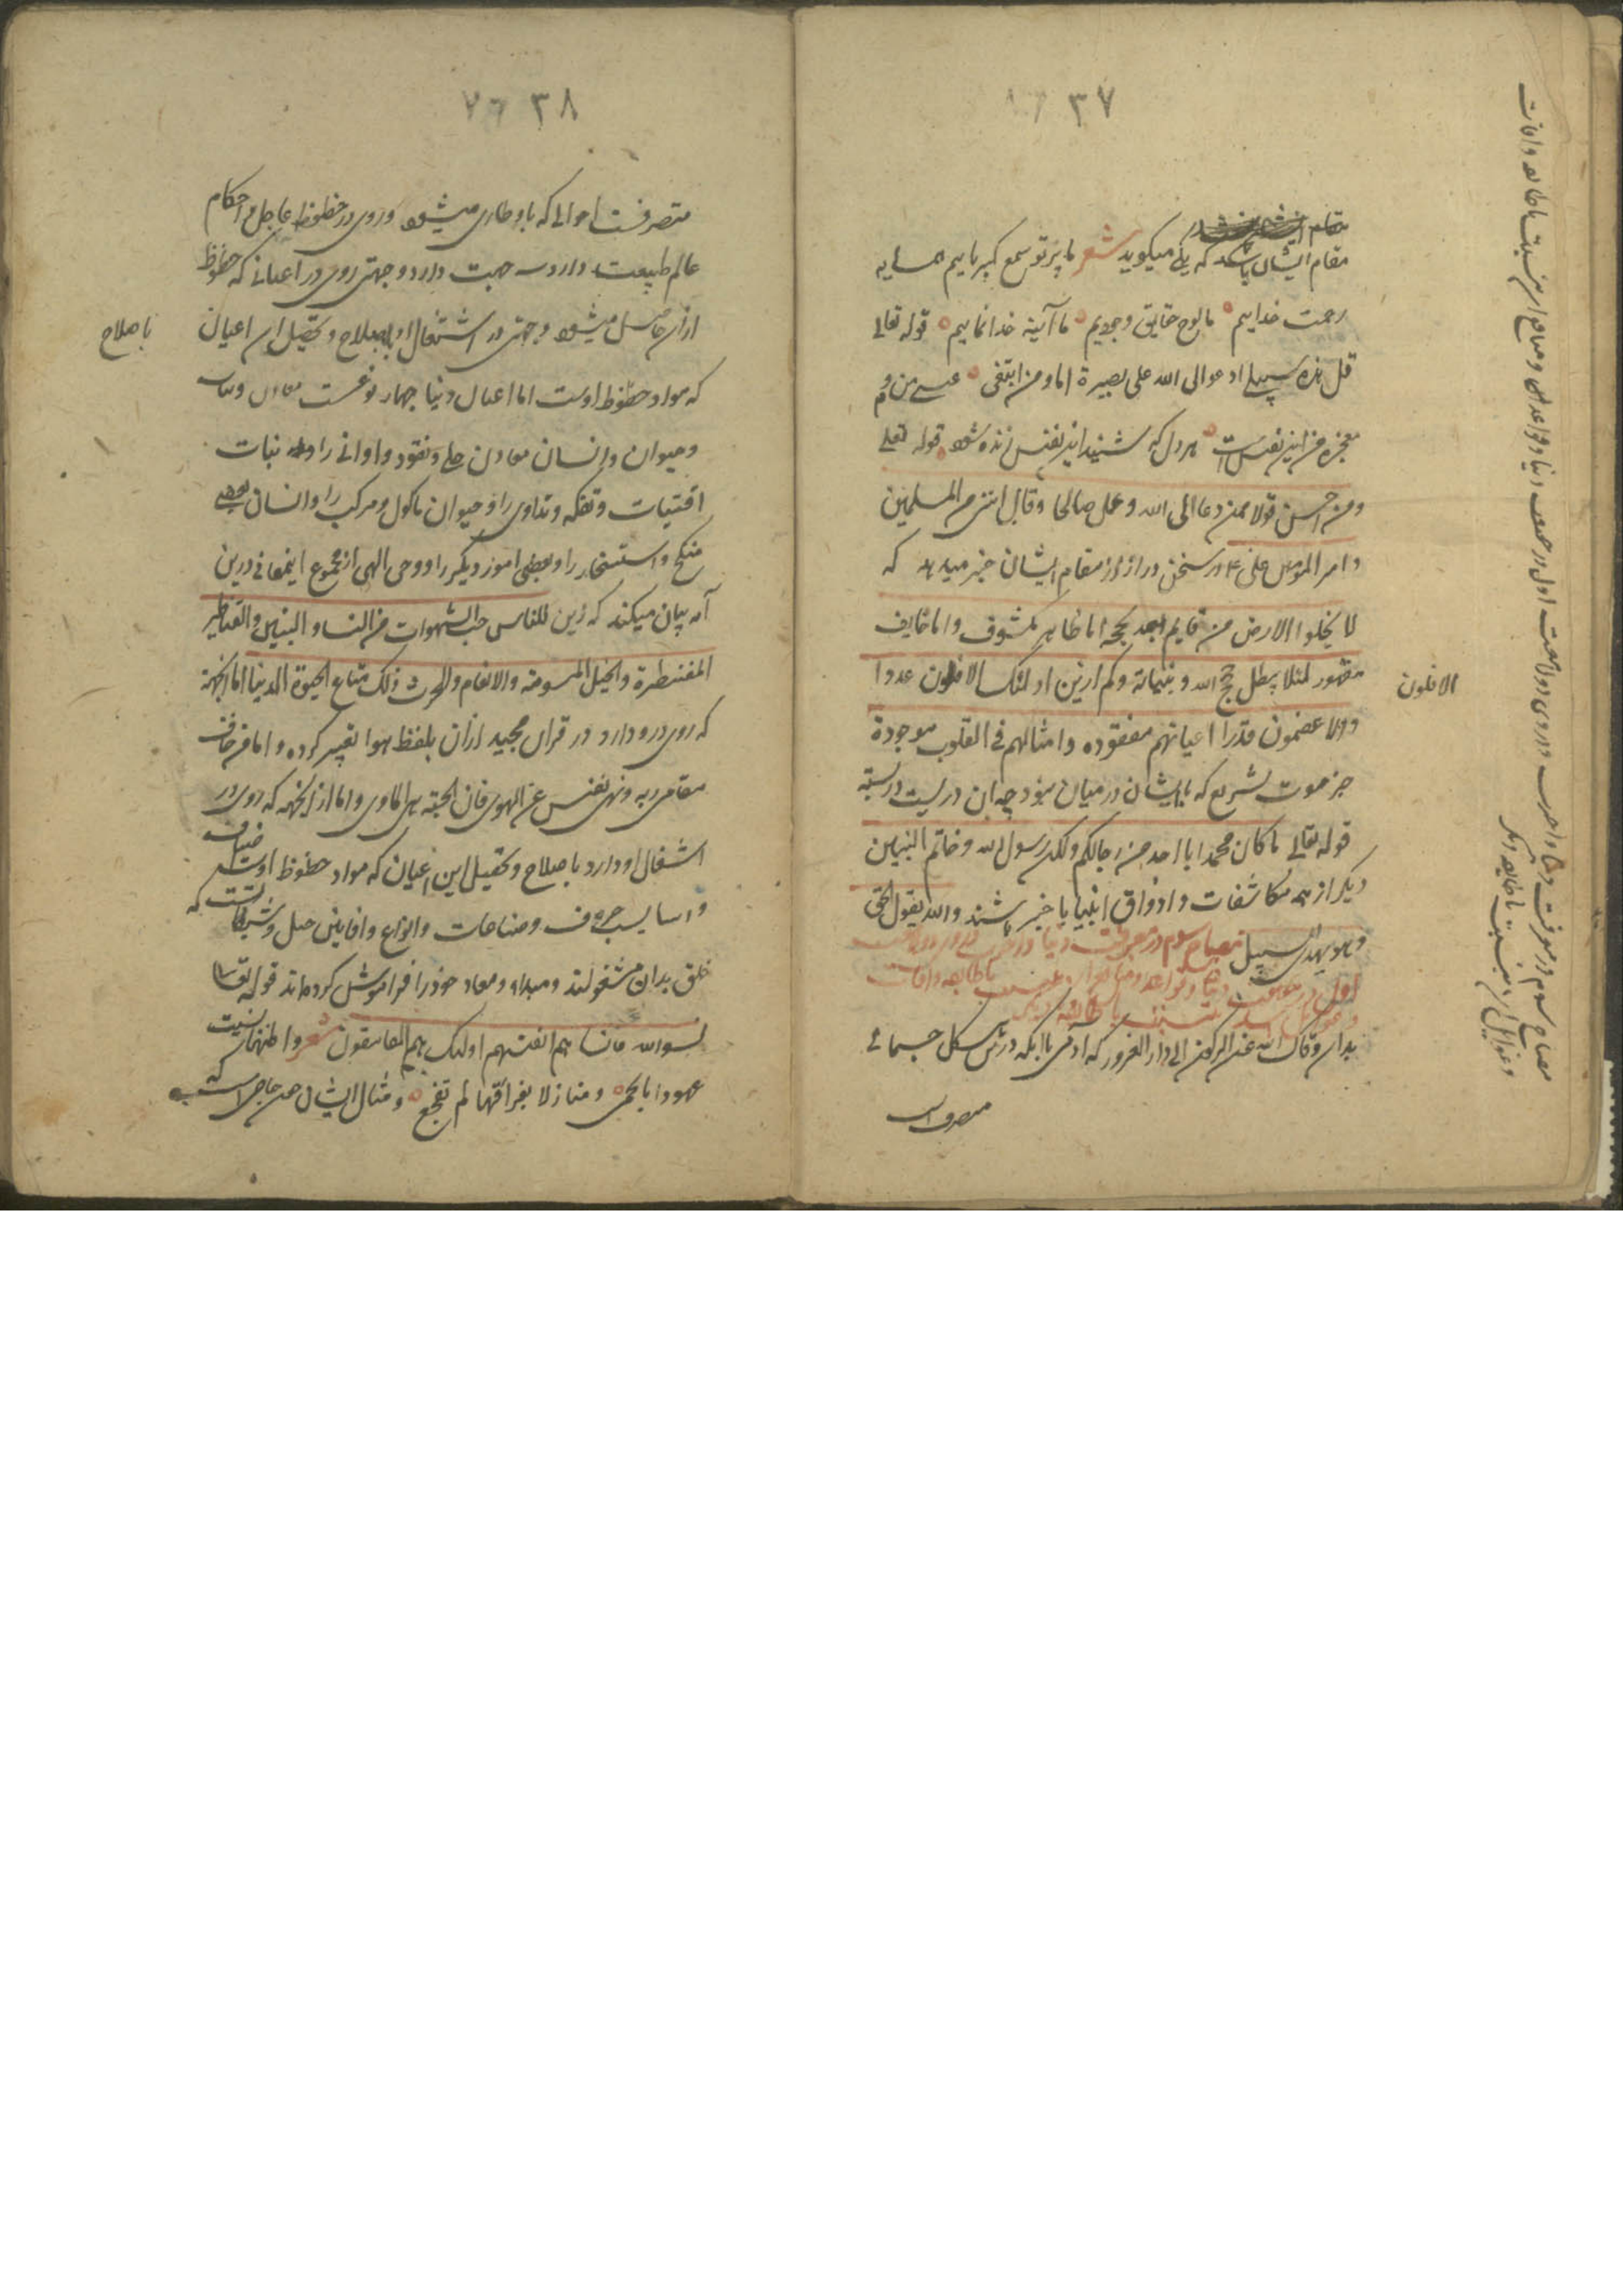 ٣٧
مقام
مقام ایشان باشد که یکی میگوید شعر ما پرتو سمع کبریاییم همسایه
رحمت خداییم ما لوح حقایق وجودیم ما آینه خدانماییم قوله تعالی
قل هذه سبیلی ادعوا الی الله علی بصیرة انا و من اتبعنی عیسی من و
معجزه من این نفس است هر دل که شنید این نفس زنده شود قوله تعلی
و من احسن قولا ممن دعا الی الله و عمل صالحا و قال اننی من المسلمین
و امیر المومنین علی در سخن دراز از مقام ایشان خبر میدهد که
لا یخلوا الارض من قایم لله بحجه اما ظاهر مکشوف و اما خایف
مقهور لئلا یبطل حجج الله و بیناته و کم و این اولئک الاقلون عددا
الاقلون
و الاعظمون قدرا اعیانهم مفقوده و امثالهم فی القلوب موجودة
جز موت تشریع که با ایشان در میان نبود چه آن دریست در بسته
قوله تعالی ما کان محمد ابا احد من رجالکم ولکن رسول الله و خاتم النبیین
دیگر از همه مکاشفات و اذواق انبیا با خبر باشند والله یقول الحق
و هو یهدی السبیل مصباح سوم در معرفت دنیا و
اول در معرفت دنیا و قواعد و منافع نسبت با طایفه و آفات
و غوایل نسبت با طایفه دیگر
بدان وقاک الله عن الرکون الی دار الغرور که آدمی با آنکه در شکل جسمانی
متصرف است
مصباح سوم در معرفت دنیا و آخرت و در وی دو لامعه است اول در معرفت دنیا و قواعد و منافع نسبت با طایفه و آفات
و غوایل نسبت با طایفه دیگر
٣٨
متصرفست احوالی که باو طاری میشود و روی در حظوظ عاجل و احکام
عالم طبیعت دارد سه جهت دارد و جهتی روی در اعیانی که حظوظ
از آن حاصل میشود و جهتی در اشتغال او باصلاح و تحصیل این اعیان
باصلاح
که مواد حظوظ اوست اما اعیان دنیا چهار نوعست معادن و نبات
و حیوان و انسان معادن حلی و نقود و اوانی را و نبات
اقتیات و تفکه و تداوی را و حیوان ماکول و مرکب را و انسان بعضی
منکح و استسخار را و بعضی امور دیگر را و وحی الهی از مجموع این معانی درین
آیه بیان میکند که زین للناس حب الشهوات من النسا و البنین و القناطیر
المقنطرة و الخیل المسومة و الانعام و الحرث ذلک متاع الحیوة الدنیا اما الجهة
که روی درو دارد در قرآن مجید از آن بلفظ هوا تعبیر کرده و اما من خاف
مقام ربه و نهی نفس عن الهوی فان الجنة هی الماوی و اما از آنجهه که روی در
اشغال او دارد باصلاح و تحصیل این اعیان که مواد حظوظ اوست
و اسالیب حرف و صناعات و انواع و افانین حیل و شیطانیت که
خلق بدان مشغولند و مبداء و معاد خود را فراموش کرده‌اند قوله تعالی
نسوا الله فانساهم انفسهم اولئک هم الفاسقون شعر و اظنها نسیت
عهودا بالحمی و منازلا بفراقها لم تقنع و مثال ایشان چون حاجی است که